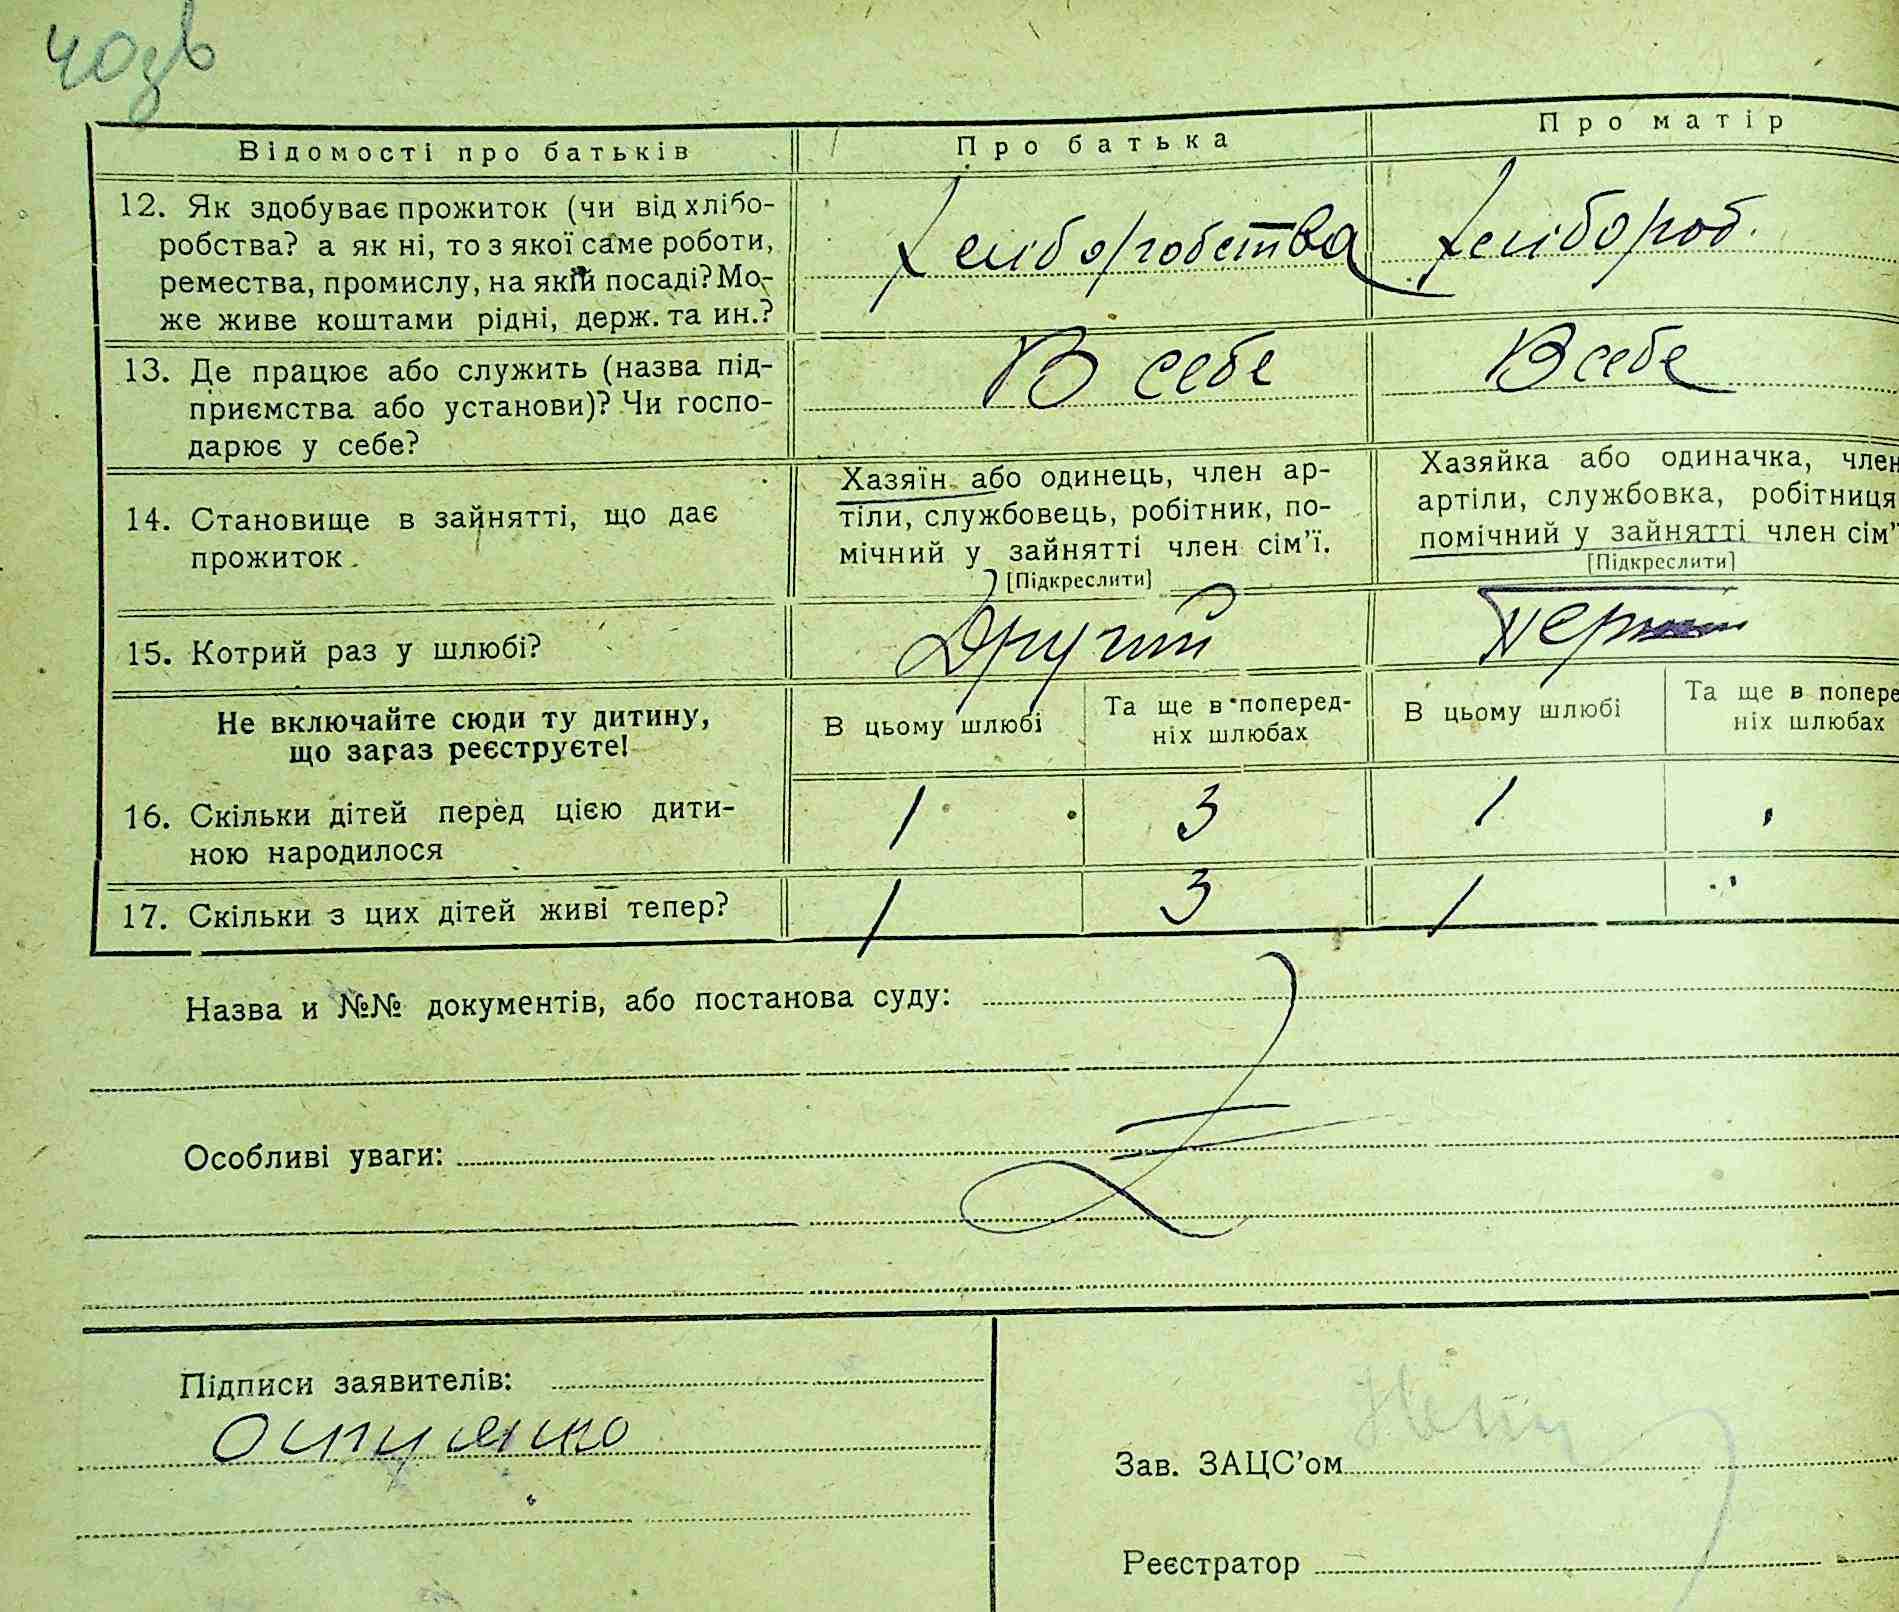 40зв
Відомості про батьків
Про батька
Про матір
12. Як здобуває прожиток (чи від хлібо-
робства? а як ні, то з якої саме роботи,
ремества, промислу, на якій посаді? Мо-
же живе коштами рідні, держ. та ин.?
Хліборобства
Хлібороб.
13. Де працює або служить (назва під-
приємства або установи)? Чи госпо-
дарює у себе?
В себе
В себе
14. Становище в зайнятті, що дає
прожиток
Хазяїн або одинець, член ар-
тіли, службовець, робітник, по-
мічний у зайнятті член сім'ї.
[Підкреслити]
Хазяйка або одиначка, член
артіли, службовка, робітниця
помічний у зайнятті член сім'
[Підкреслити]
15. Котрий раз у шлюбі?
Другий
Не включайте сюди ту дитину,
що зараз реєструєте!
В цьому шлюбі
Та ще в поперед-
ніх шлюбах
В цьому шлюбі
Та ще в попере
ніх шлюбах
16. Скільки дітей перед цією дити-
ною народилося
1 3 1
17. Скільки з цих дітей живі тепер?
1 3 1
Назва и №№ документів, або постанова суду:
Особливі уваги:
Підписи заявителів:
Зав. ЗАЦС'ом
Реєстратор